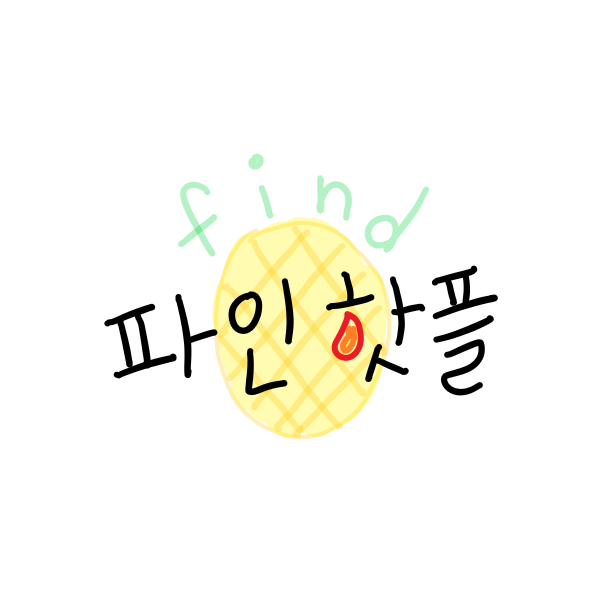 find
파인핫플